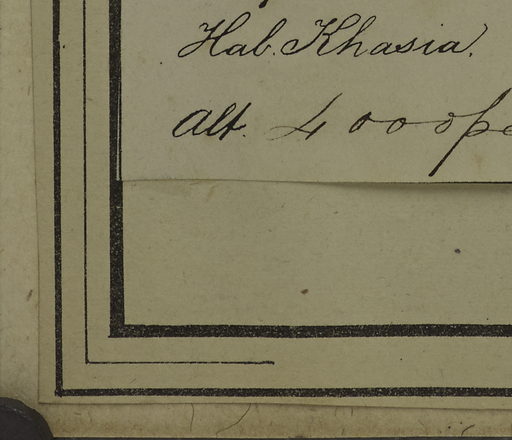 Hab. Khasia.
Alt. 4000 pe